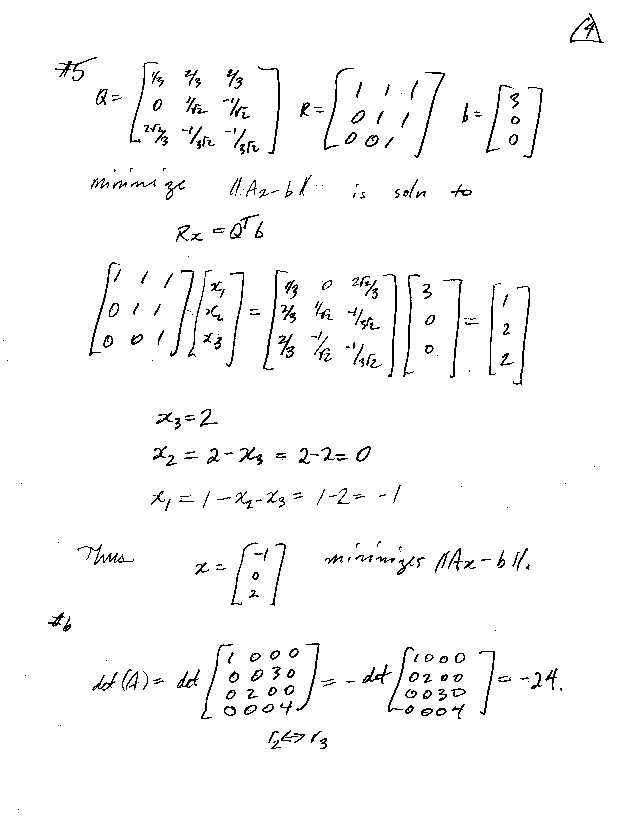 4
#5
Q = [1/3 2/3 2/3; 0 1/√2 -1/√2; 2√2/3 -1/3√2 -1/3√2] R = [1 1 1; 0 1 1; 0 0 1] b = [3; 0; 0]
minimize ||Ax-b|| is soln to
Rx = Qᵀb
[1 1 1; 0 1 1; 0 0 1] [x₁; x₂; x₃] = [1/3 0 2√2/3; 2/3 1/√2 -1/3√2; 2/3 -1/√2 -1/3√2] [3; 0; 0] = [1; 2; 2]
x₃ = 2
x₂ = 2 - x₃ = 2-2 = 0
x₁ = 1 - x₂ - x₃ = 1-2 = -1
Thus x = [-1; 0; 2] minimizes ||Ax-b||.
#6
det(A) = det [1 0 0 0; 0 0 3 0; 0 2 0 0; 0 0 0 4] = - det [1 0 0 0; 0 2 0 0; 0 0 3 0; 0 0 0 4] = -24.
r₂⇔r₃